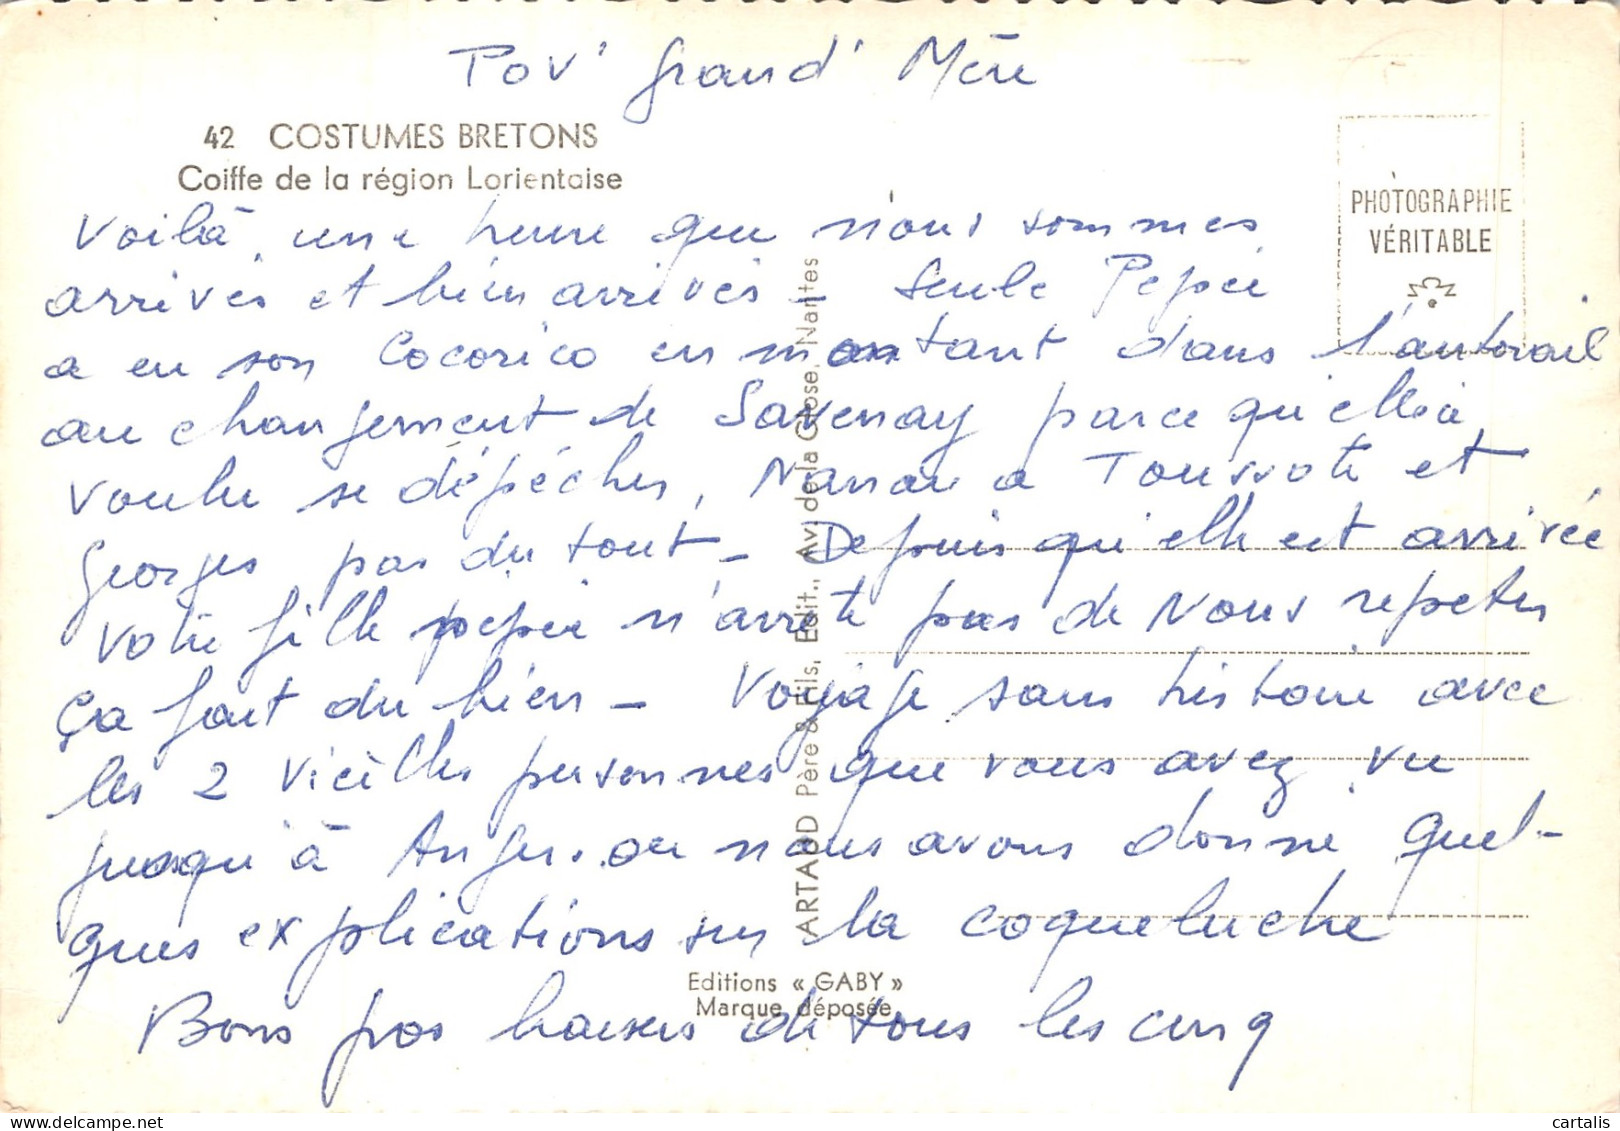 Pov' Grand' Mère
42 COSTUMES BRETONS
Coiffe de la région Lorientaise
PHOTOGRAPHIE
VÉRITABLE
Voilà une heure que nous sommes
arrivés et bien arrivés - Seule Pépée
a eu son Cocorico en montant dans l'autorail
au changement de Savenay parce qu'elle a
voulu se dépécher, Nanou a Toussoté et
Georges pas du tout - Depuis qu'elle est arrivée
votre fille pépée n'arrête pas de Nous repeter
Ça fait du bien - Voyage sans histoire avec
les 2 vieilles personnes que vous avez vu
jusqu'à Angers. ou nous avons donné quel-
ques explications sur la coqueluche
Bons gros baisers de tous les cinq
ARTAUD Père & Fils, Edit., Av. de la Close, Nantes
Editions « GABY »
Marque déposée
cartalis